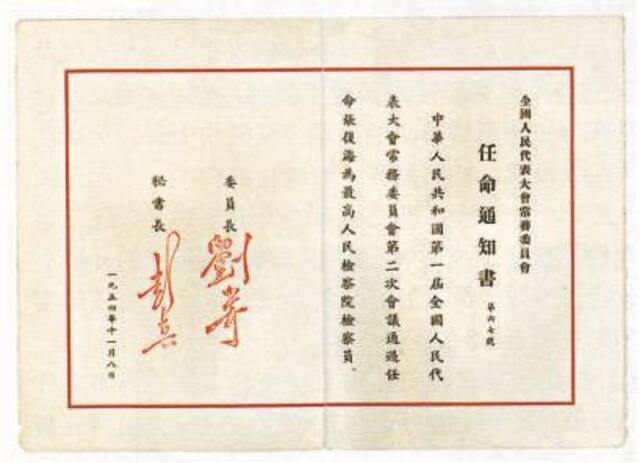 全國人民代表大會常務委員會
任命通知書 第六七號
中華人民共和國第一屆全國人民代
表大會常務委員會第二次會議通過任
命張復海為最高人民檢察院檢察員。
委員長 劉少奇
秘書長 彭真
一九五四年十一月八日